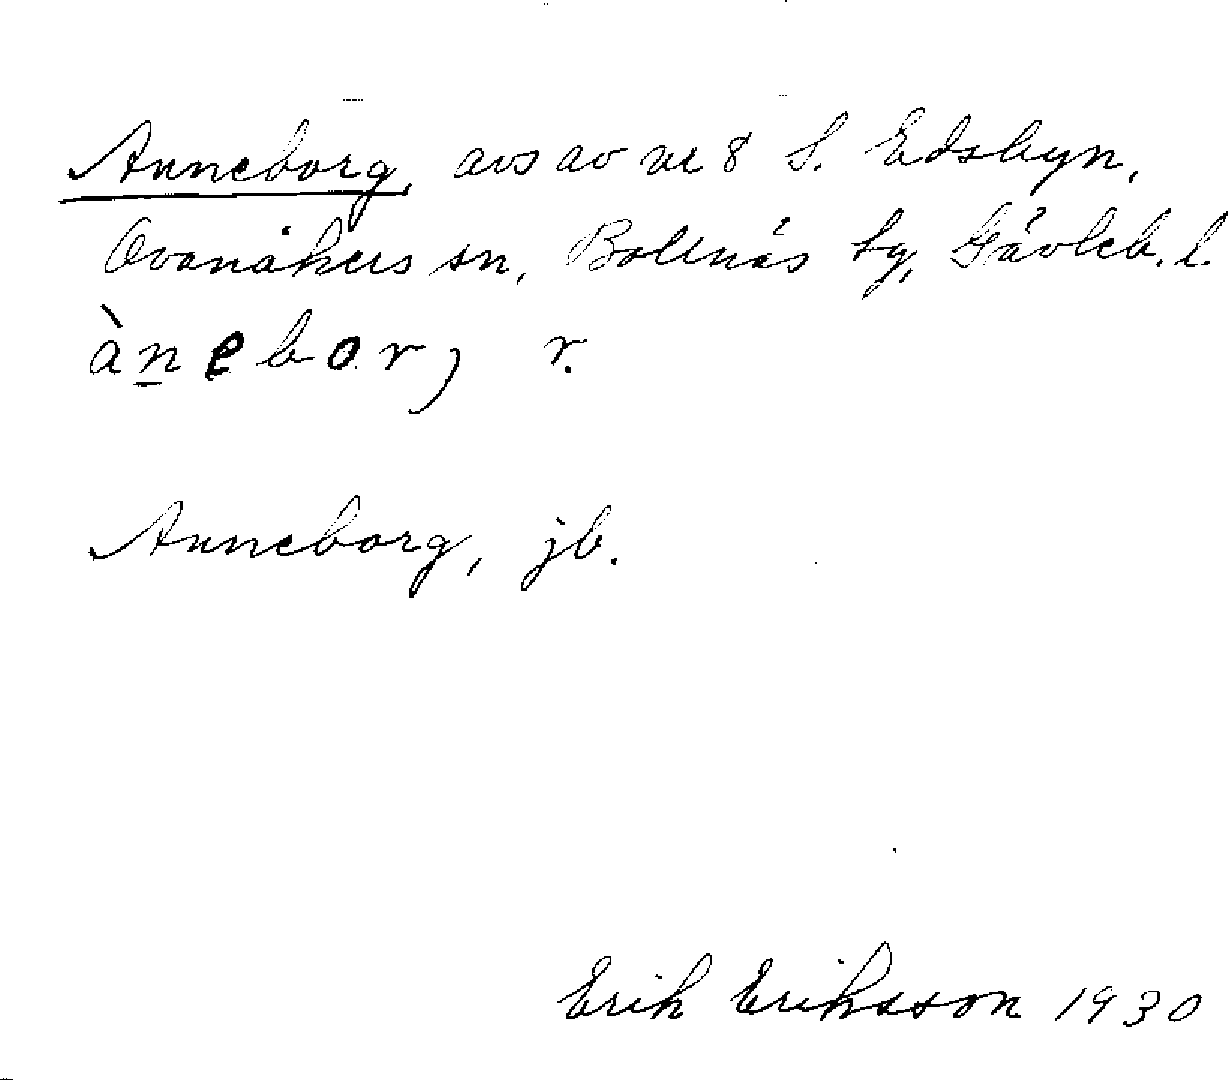 Anneborg, avs av nr 8 S. Edsbyn,
Ovanåkers sn, Bollnäs tg, Gävleb. l.
ànebor, r.
Anneborg, jb.
Erik Eriksson 1930